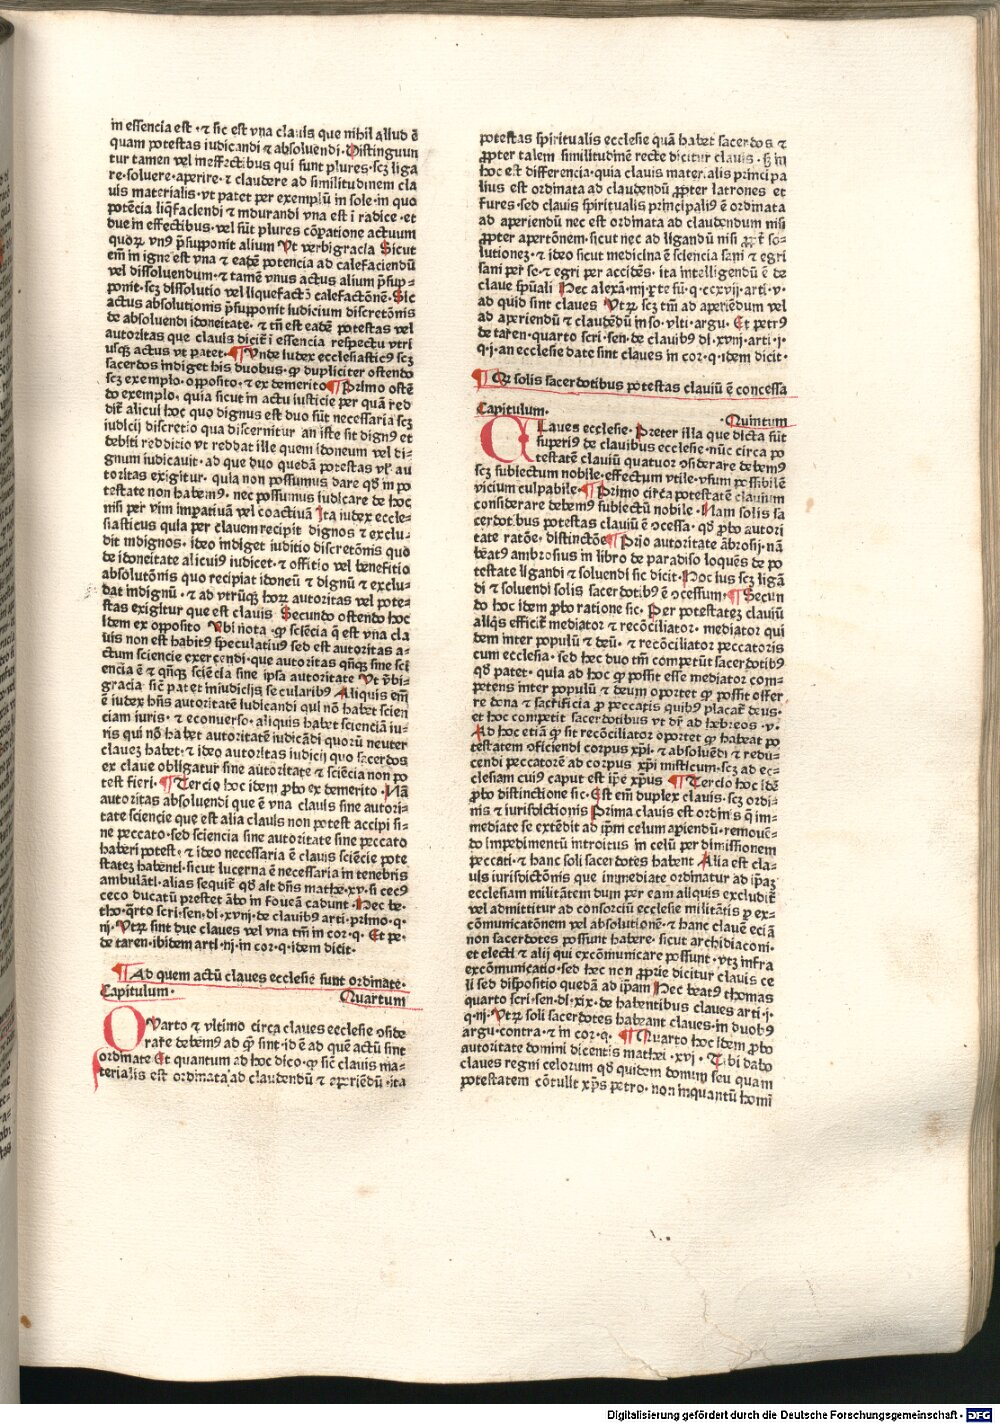 in essencia est · ⁊ sic est vna clauis que nihil aliud ē
quam potestas iudicandi ⁊ absoluendi · Distinguun
tur tamen vel in effectibus qui sunt plures · scꝫ liga
re · soluere · aperire · ⁊ claudere ad similitudinem cla
uis materialis · vt patet per exemplū in sole · in quo
potēcia liq̄faciendi ⁊ indurandi vna est ī radice · et
due in effectibus · vel sūt plures cōpatione actuum
quoꝝ vnꝰ p̄supponit alium Ut verbigracia Sicut
em̄ in igne est vna ⁊ eadē potencia ad calefaciendū
vel dissoluendum · ⁊ tamē vnus actus alium p̄sup-
ponit · scꝫ dissolutio vel liquefactō calefactōnē · Sic
actus absolutionis p̄supponit iudicium discretōnis
de absoluendi idoneitate · ⁊ tn̄ est eadē potestas vel
autoritas que clauis dicit̄ ī essencia respectu vtri
usqꝫ actus vt patet · ¶ Unde iudex ecclesiasticꝰ scꝫ
sacerdos indiget his duobus · ꝙ dupliciter ostendo
scꝫ exemplo · opposito · ⁊ ex demerito ¶ Primo ostē
do exemplo, quia sicut in actu iusticie per quā red
dit̄ alicui hoc quo dignus est duo sūt necessaria scꝫ
iudicij discretio qua discernitur an iste sit dignꝰ et
debiti redditio vt reddat ille quem idoneum vel di-
gnum iudicauit · ad que duo quedā potestas vl' au
toritas exigitur · quia non possumus dare qd̄ in po
testate non habemꝰ · nec possumus iudicare de hoc
nisi per vim imperatiuā vel coactiuā Ita iudex eccle-
siasticus quia per clauem recipit dignos ⁊ exclu-
dit indignos · ideo indiget iuditio discretōnis quo
de idoneitate alicuiꝰ iudicet · ⁊ offitio vel benefitio
absolutōnis quo recipiat idoneū ⁊ dignū ⁊ exclu-
dat indignū · ⁊ ad vtrūqꝫ hoꝝ autoritas vel pote-
stas exigitur que est clauis Secundo ostendo hoc
idem ex opposito Ubi nota · ꝙ sciēcia q̄ est vna cla
uis non est habitꝰ speculatiuꝰ sed est autoritas a-
ctum sciencie exercendi · que autoritas qn̄qꝫ sine sci
encia ē ⁊ qn̄qꝫ sciēcia sine ipsa autoritate Ut v̄bi-
gracia sic̄ patet in iudicijs secularibꝰ Aliquis em̄
ē iudex hn̄s autoritatē iudicandi qui nō habet scien
ciam iuris · ⁊ econuerso · aliquis habet scienciā iu-
ris qui nō habet autoritatē iudicādi quorū neuter
claueꝫ habet · ⁊ ideo autoritas iudicij quo sacerdos
ex claue obligatur sine autoritate ⁊ sciēcia non po
test fieri · ¶ Tercio hoc idem ꝓbo ex demerito · Nā
autoritas absoluendi que ē vna clauis sine autori-
tate sciencie que est alia clauis non potest accipi si-
ne peccato · sed sciencia sine autoritate sine peccato
haberi potest · ⁊ ideo necessaria ē clauis sciēcie pote
stateꝫ habenti · sicut lucerna ē necessaria in tenebris
ambulāti · alias sequit̄ qd̄ ait dn̄s mathe · xv · si cecꝰ
ceco ducatū prestet ābo in foueā cadunt · Hec be ·
tho · q̄rto scri · sen · di · xvij · de clauibꝰ arti · primo · q ·
iij · Utꝝ sint due claues vel vna tm̄ in cor · q · Et pe ·
de taren · ibidem arti · iij · in cor · q · idem dicit ·
¶ Ad quem actū claues ecclesie sunt ordinate ·
Capitulum · Quartum
QUarto ⁊ vltimo circa claues ecclesie ↄside
rare debemꝰ ad qd̄ sint · id ē ad quē actū sint
ordinate Et quantum ad hoc dico · ꝙ sic̄ clauis ma-
terialis est ordinata ad claudendū ⁊ aperiēdū · ita
potestas spiritualis ecclesie quā habet sacerdos ⁊
ꝓpter talem similitudinē recte dicitur clauis · Sꝫ in
hoc est differencia · quia clauis materialis principa
lius est ordinata ad claudendū ꝓpter latrones et
fures · sed clauis spiritualis principaliꝰ ē ordinata
ad aperiendū nec est ordinata ad claudendum nisi
ꝓpter apertōnem · sicut nec ad ligandū nisi ꝓpt̄ so-
lutioneꝫ · ⁊ ideo sicut medicina ē sciencia sani ⁊ egri
sani per se · ⁊ egri per accidēs · ita intelligendū ē de
claue spūali Hec alexā · iiij · p̄te sū · q · ccxvij · arti · v ·
ad quid sint claues Utꝝ scꝫ tm̄ ad aperiēdum vel
ad aperiendū ⁊ claudēdū in so · vlti · argu · Et petrꝰ
de taren · quarto scri · sen · de clauibꝰ di · xvij · arti · j ·
q · j · an ecclesie date sint claues in cor · q · idem dicit ·
¶ Qꝝ solis sacerdotibus potestas clauiū ē concessa
Capitulum · Quintum
CLaues ecclesie · Preter illa que dicta sūt
superiꝰ de clauibus ecclesie · nūc circa po
testatē clauiū quatuor ↄsiderare debemꝰ
scꝫ subiectum nobile · effectum vtile · vsum possibilē
vicium culpabile · ¶ Primo circa potestatē clauium
considerare debemꝰ subiectū nobile · Nam solis sa
cerdotibus potestas clauiū ē ↄcessa · qd̄ ꝓbo autori
tate ratōe · distinctōe ¶ Prīo autoritate ābrosij · nā
beatꝰ ambrosius in libro de paradiso loquēs de po
testate ligandi ⁊ soluendi sic dicit · Hoc ius scꝫ ligā
di ⁊ soluendi solis sacerdotibꝰ ē ↄcessum · ¶ Secun
do hoc idem ꝓbo ratione sic · Per potestateꝫ clauiū
aliq̄s efficit̄ mediator ⁊ recōciliator · mediator qui
dem inter populū ⁊ deū · ⁊ recōciliator peccatoris
cum ecclesia · sed hec duo tm̄ competūt sacerdotibꝰ
qd̄ patet · quia ad hoc ꝙ possit esse mediator com-
petens inter populū ⁊ deum oportet ꝙ possit offer
re dona ⁊ sacrificia ꝓ peccatis quibꝰ placat̄ deus ·
et hoc competit sacerdotibus vt dr̄ ad hebreos · v ·
Ad hoc etiā ꝙ sit recōciliator oportet ꝙ habeat po
testatem ↄficiendi corpus xp̄i · ⁊ absoluēdi ⁊ redu-
cendi peccatorē ad corpus xp̄i misticum · scꝫ ad ec-
clesiam cuiꝰ caput est ip̄e xp̄us ¶ Tercio hoc idē
ꝓbo distinctione sic · Est em̄ duplex clauis · scꝫ ordi-
nis ⁊ iurisdictionis Prima clauis est ordinis q̄ im-
mediate se extēdit ad ip̄m celum apiendū · remouē-
do impedimentū introitus in celū per dimissionem
peccati · ⁊ hanc soli sacerdotes habent Alia est cla-
uis iurisdictōnis que inmediate ordinatur ad ip̄aꝫ
ecclesiam militātem dum per eam aliquis excludit̄
vel admittitur ad consorciū ecclesie militātis ꝑ ex-
cōmunicatōnem vel absolutionē · ⁊ hanc clauē eciā
non sacerdotes possunt habere · sicut archidiaconi ·
et electi ⁊ alij qui excōmunicare possunt · vtꝫ infra
excōmunicatio · sed hec non ꝓprie dicitur clauis ce
li sed dispositio quedā ad ip̄am Hec beatꝰ thomas
quarto scri · sen · di · xix · de habentibus claues arti · j ·
q · iij · Utꝝ soli sacerdotes habeant claues · in duobꝰ
argu · contra · ⁊ in cor · q · ¶ Quarto hoc idem ꝓbo
autoritate domini dicentis mathei · xvj · Tibi dabo
claues regni celorum qd̄ quidem donum seu quam
potestatem cōtulit xp̄s petro · non inquantū homi
Digitalisierung gefördert durch die Deutsche Forschungsgemeinschaft - DFG